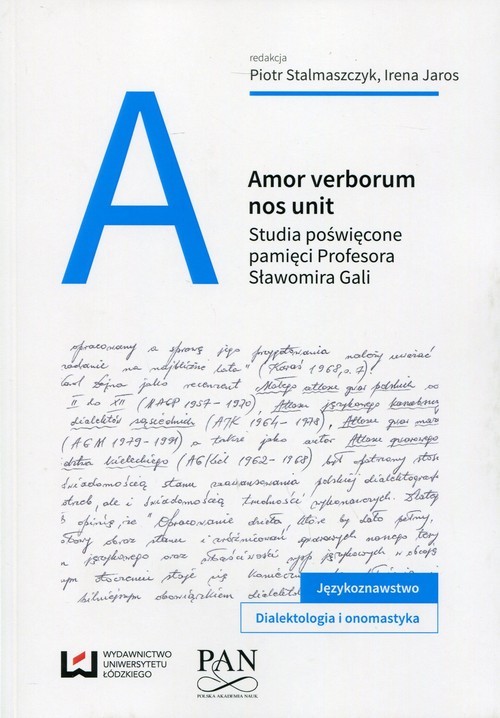 redakcja
Piotr Stalmaszczyk, Irena Jaros
A
Amor verborum
nos unit
Studia poświęcone
pamięci Profesora
Sławomira Gali
opracowany a sprawę jego przygotowania należy uważać
zadanie na najbliższe lata" (Karaś 1968, s. 7).
jako recenzent Małego atlasu gwar polskich
II do XII (MAGP 1957 – 1970), Atlasu językowego kaszubszczyzny
dialektów sąsiednich (AJK 1964 – 1978), Atlasu gwar
(AGM 1979 – 1991) a także jako autor Atlasu gwarowego
kieleckiego (AGKiel 1962 – 1968) był
świadomością stanu zaawansowania polskiej
ale i świadomością trudności
opinię, że "Opracowanie dzieła, które by dało pełny,
obraz stanu i zróżnicowań gwarowych naszego
językowego oraz właściwości
tworzenie staje się
dialekt
Językoznawstwo
Dialektologia i onomastyka
WYDAWNICTWO
UNIWERSYTETU
ŁÓDZKIEGO
PAN
POLSKA AKADEMIA NAUK